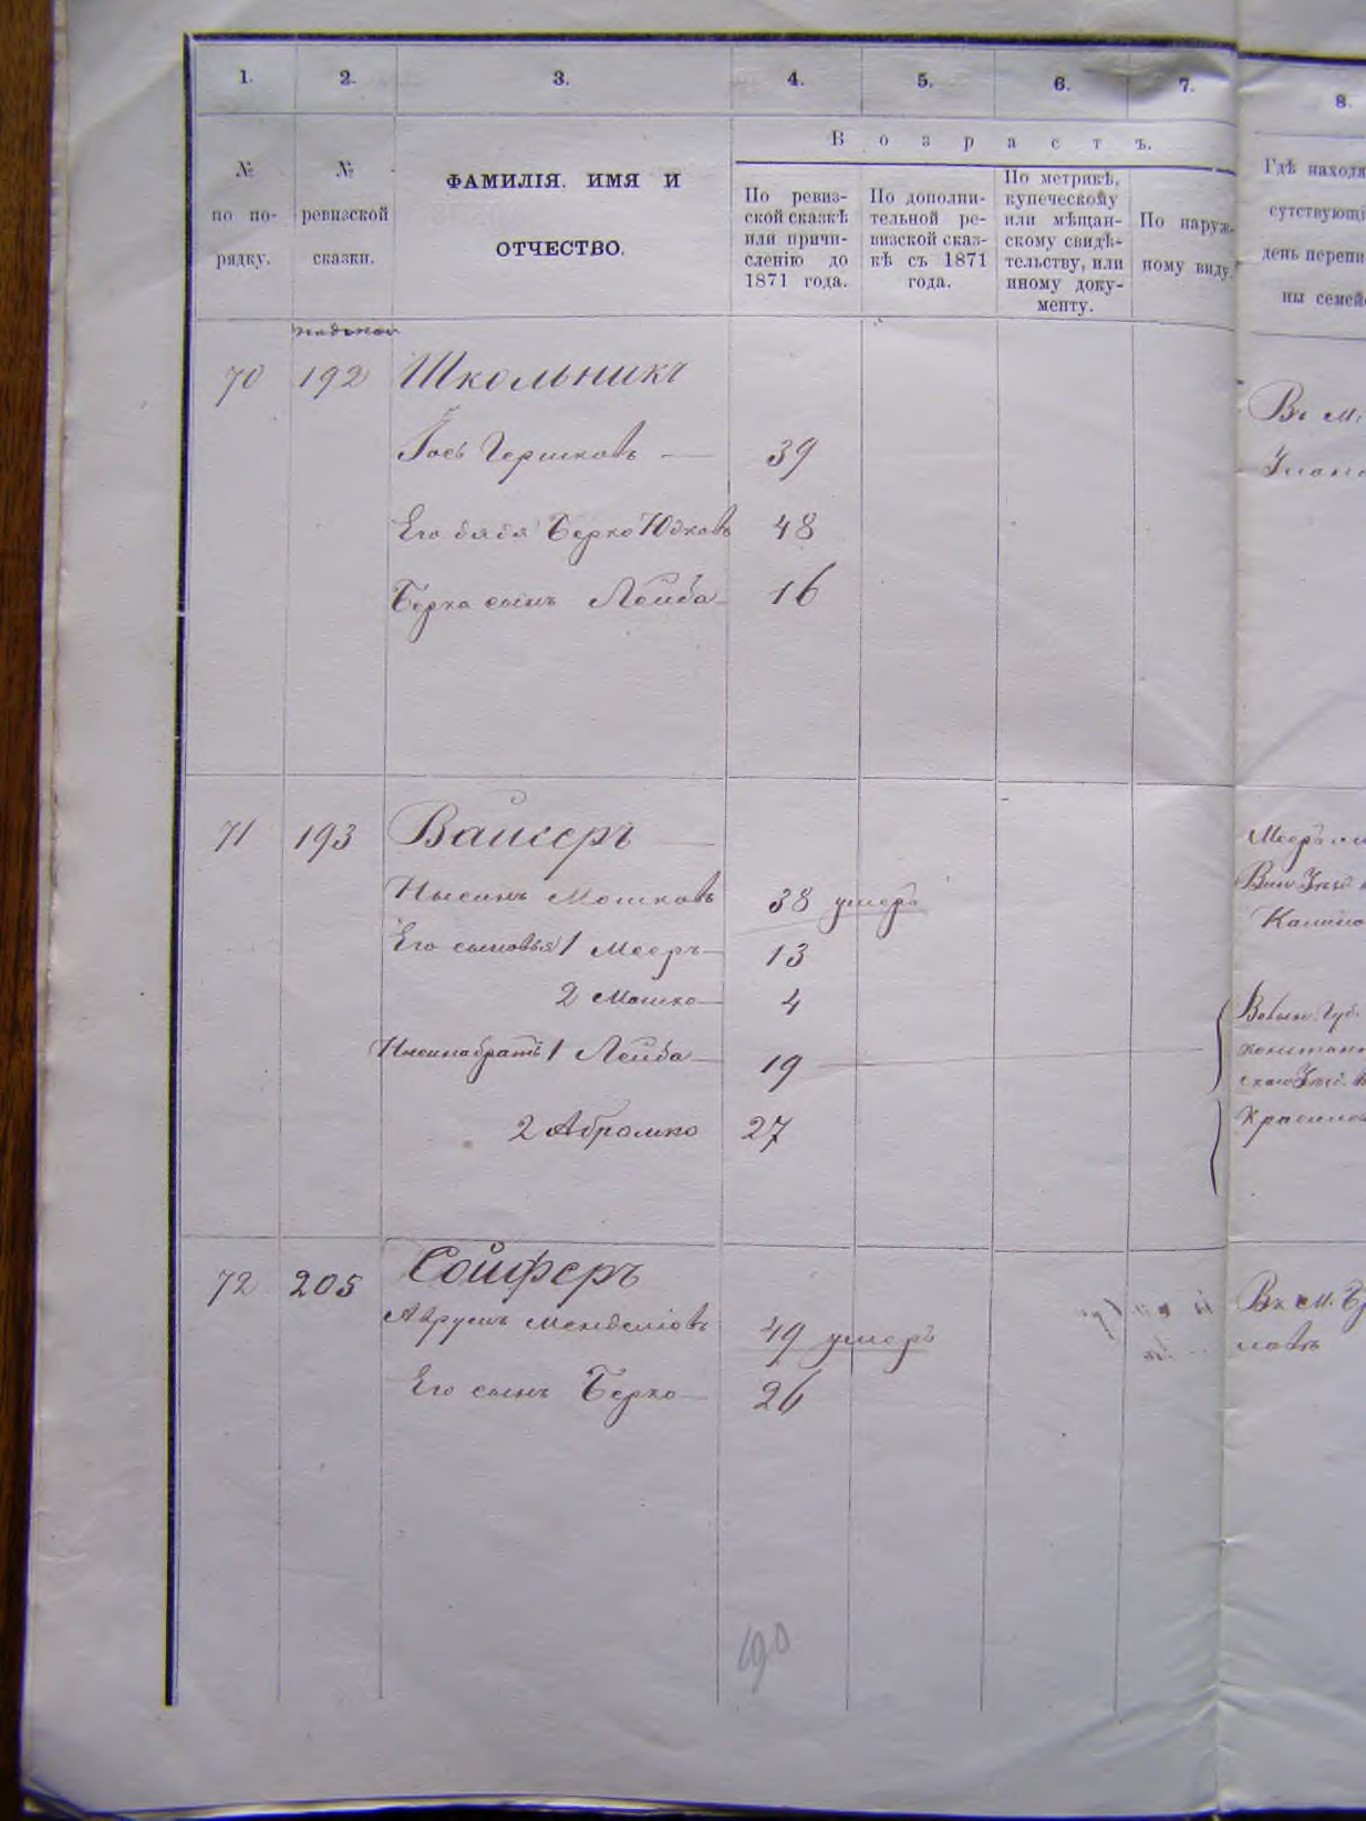 1. 2. 3. 4. 5. 6. 7. 8
№ по порядку.
№ ревизской сказки.
ФАМИЛІЯ, ИМЯ И
ОТЧЕСТВО.
Возрастъ.
По ревиз-
ской сказкѣ
или причи-
сленію до
1871 года.
По дополни-
тельной ре-
визской сказ-
кѣ съ 1871
года.
По метрикѣ,
купеческому
или мѣщан-
скому свидѣ-
тельству, или
иному доку-
менту.
По наруж-
ному виду.
Гдѣ находя
сутствующі
день перепи
ны семей
70 192 Школьникъ
Іось Гершковъ — 39
Его дядя Берко Юдковъ 48
Берка сынъ Лейба 16
Въ м.
71 193 Вайсеръ
Нысинъ Мошковъ 38 умеръ
Его сыновья 1 Мееръ 13
2 Мошко 4
Нысина братья 1 Лейба 19
2 Абрамко 27
Мееръ
Вин. Уѣзд.
Волын. Губ.
72 205 Сойферъ
Аврумъ Менделіовъ 49 умеръ
Его сынъ Берко 26
Въ м.
190